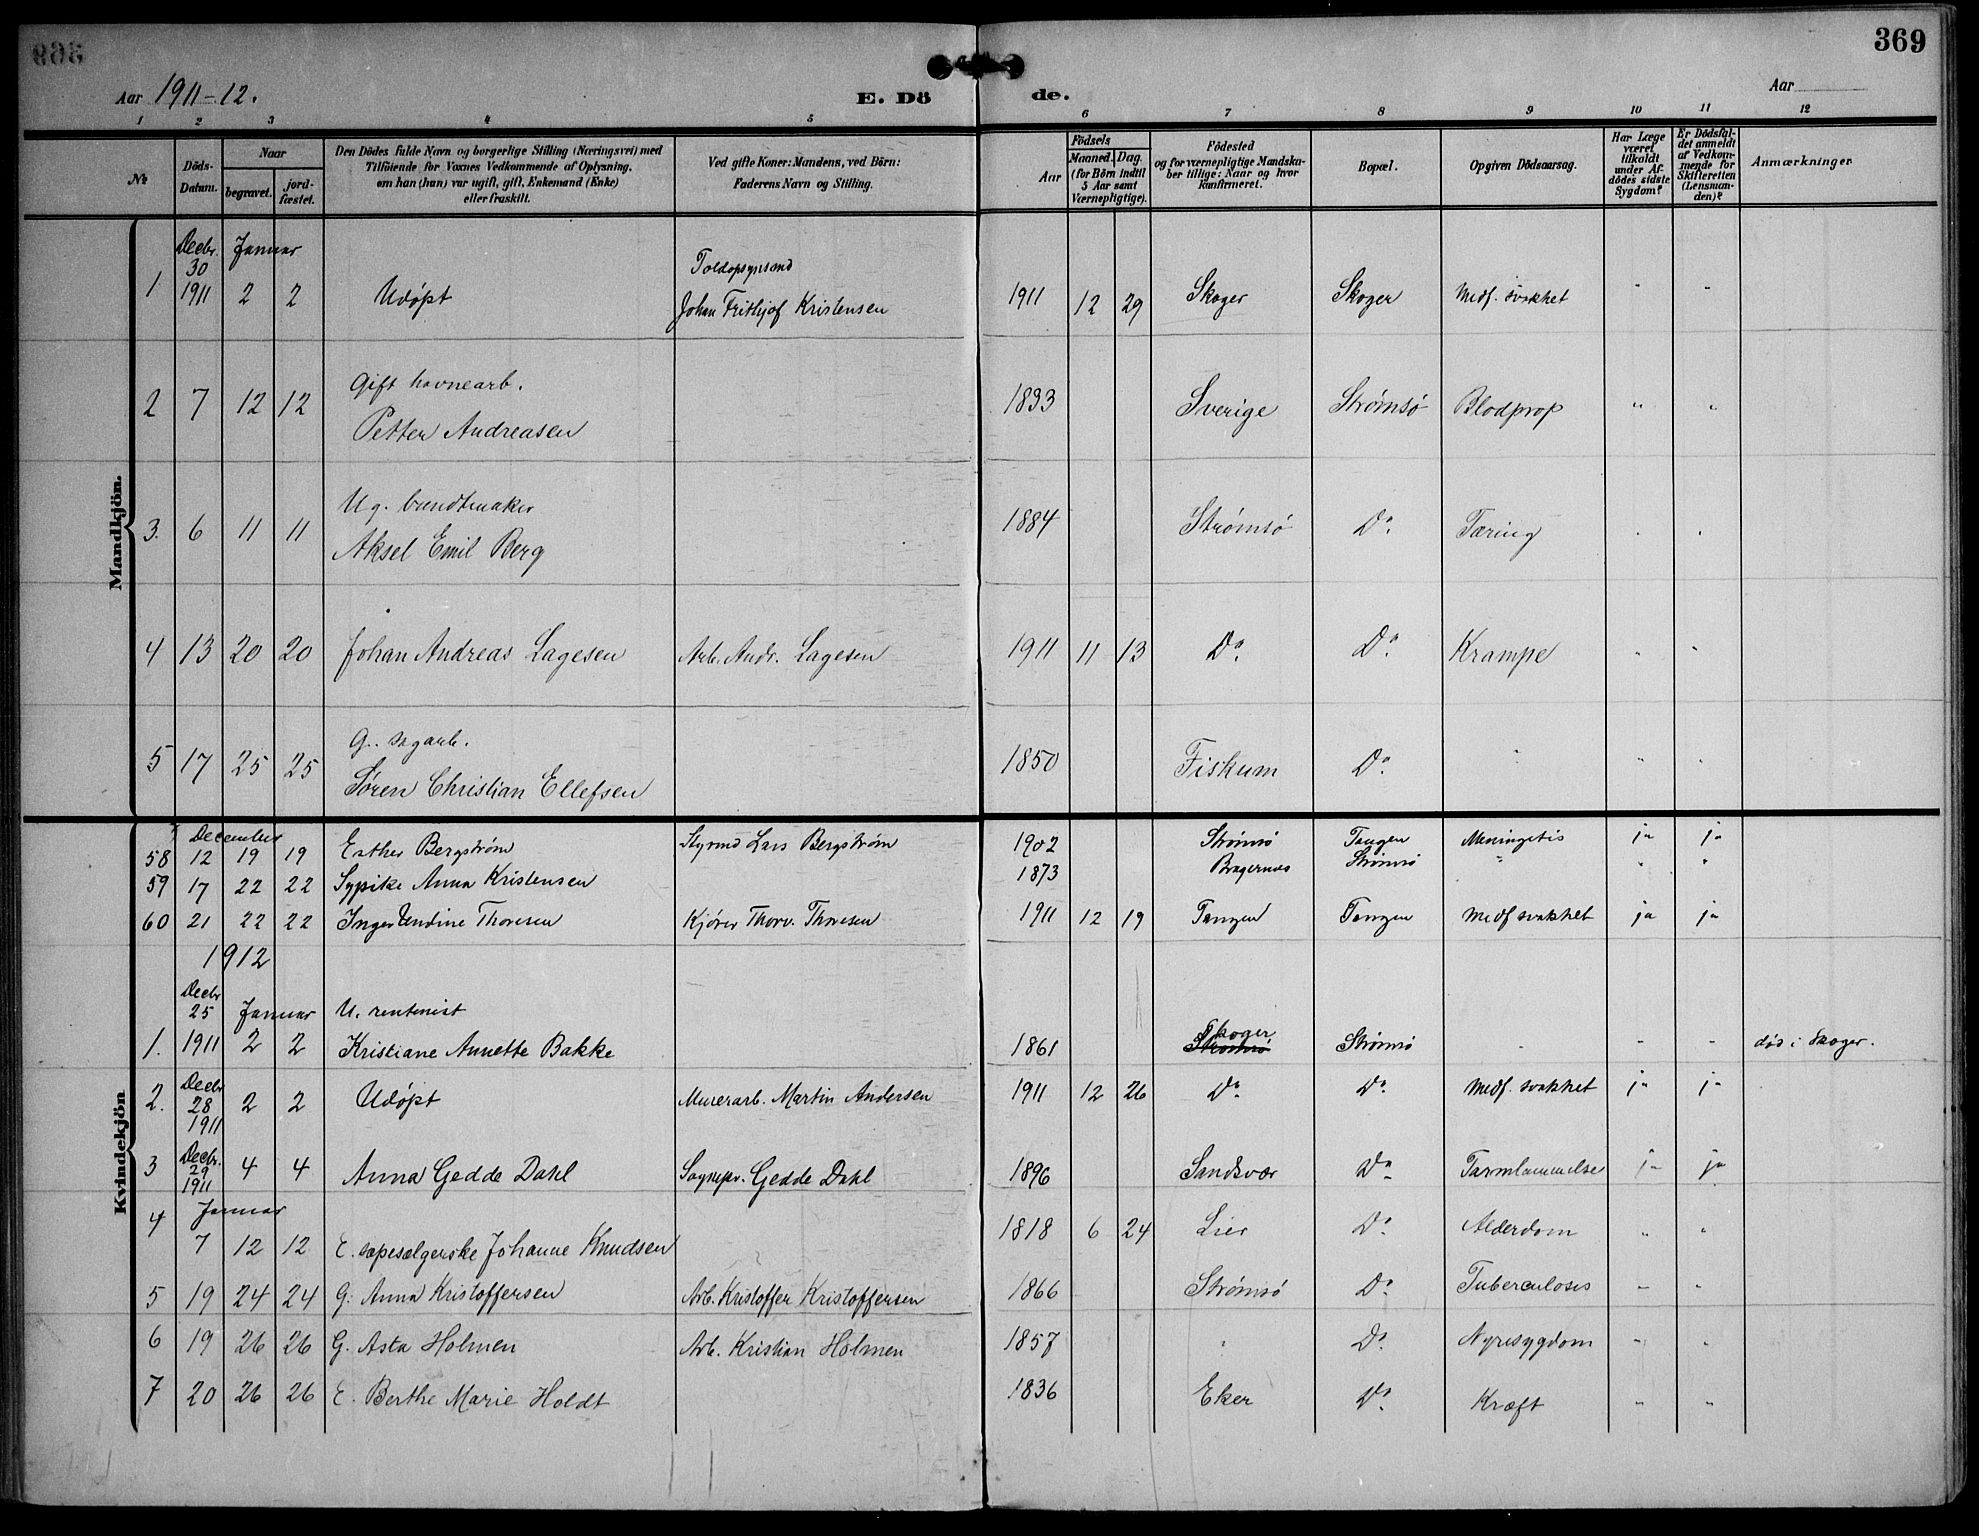 369
Aar 1911-12.
E. Dö de.
Aar
1 2 3 4 5 6 7 8 9 10 11 12
№
Döds-Datum.
Naar
begravet.
jord-fæstet.
Den Dödes fulde Navn og borgerlige Stilling (Næringsvei) med
Tilföiende for Voxnes Vedkommende af Oplysning,
om han (hun) var ugift, gift, Enkemand (Enke)
eller fraskilt.
Ved gifte Koner: Mandens, ved Börn:
Faderens Navn og Stilling.
Födsels
Aar
Maaned. Dag.
(for Börn indtil
5 Aar samt
Værnepligtige).
Födested
og for værnepligtige Mandska-
ber tillige: Naar og hvor
konfirmeret.
Bopæl.
Opgiven Dödsaarsag.
Har Læge
været
tilkaldt
under Af-
dödes sidste
Sygdom?
Er Dödsfal-
det anmeldt
af Vedkom-
mende for
Skifteretten
(Lensman-
den)?
Anmærkninger
Mandkjön.
Decbr. Januar
30 Toldopsynsmd
1 1911 2 2 Udøpt Johan Frithjof Kristensen 1911 12 29 Skoger Skoger Medf. svakhet " "
Gift havnearb.
2 7 12 12 Petter Andreasen 1833 Sverige Strømsø Blodprop " "
Ug. bundtmaker
3. 6 11 11 Aksel Emil Berg 1884 Strømsø Do. Tæring " "
4 13 20 20 Johan Andreas Lagesen Arb. Andr. Lagesen 1911 11 13 Do. Do. Krampe " "
G. sagarb.
5 17 25 25 Søren Christian Ellefsen 1850 Fiskum Do. " " "
Kvindekjön
December
58 12 19 19 Esther Bergstrøm Styrmd Lars Bergstrøm 1902 Strømsø Tangen Meningetis ja ja
59 17 22 22 Sypike Anna Kristensen 1873 Bragernæs Strømsø " " "
60 21 22 22 Inger Undine Thoresen Kjører Thorv. Thoresen 1911 12 19 Tangen Tangen Medf svakhet ja ja
1912
Decbr
25 Januar U. rentenist
1. 1911 2 2 Kristiane Annette Bakke 1861 Skoger Strømsø Strømsø - - - død i Skoger.
Decbr
2. 28 2 2 Udøpt Murerarb. Martin Andersen 1911 12 26 Do. Do. Medf. svakhet ja ja
1911
Decbr.
3 29 4 4 Anna Gedde Dahl Sognepr. Gedde Dahl 1896 Sandsvær Do. Tarmlammelse ja ja
1911
4 Januar
7 12 12 E. sæpesælgerske Johanne Knudsen 1818 6 24 Lier Do. Alderdom " "
5 19 24 24 G. Anna Kristoffersen Arb. Kristoffer Kristoffersen 1866 Strømsø Do. Tuberculosis - "
6 19 26 26 G. Asta Holmen Arb. Kristian Holmen 1857 " Do. Nyresygdom " "
7 20 26 26 E. Berthe Marie Holdt 1836 Eker Do. Kræft " "